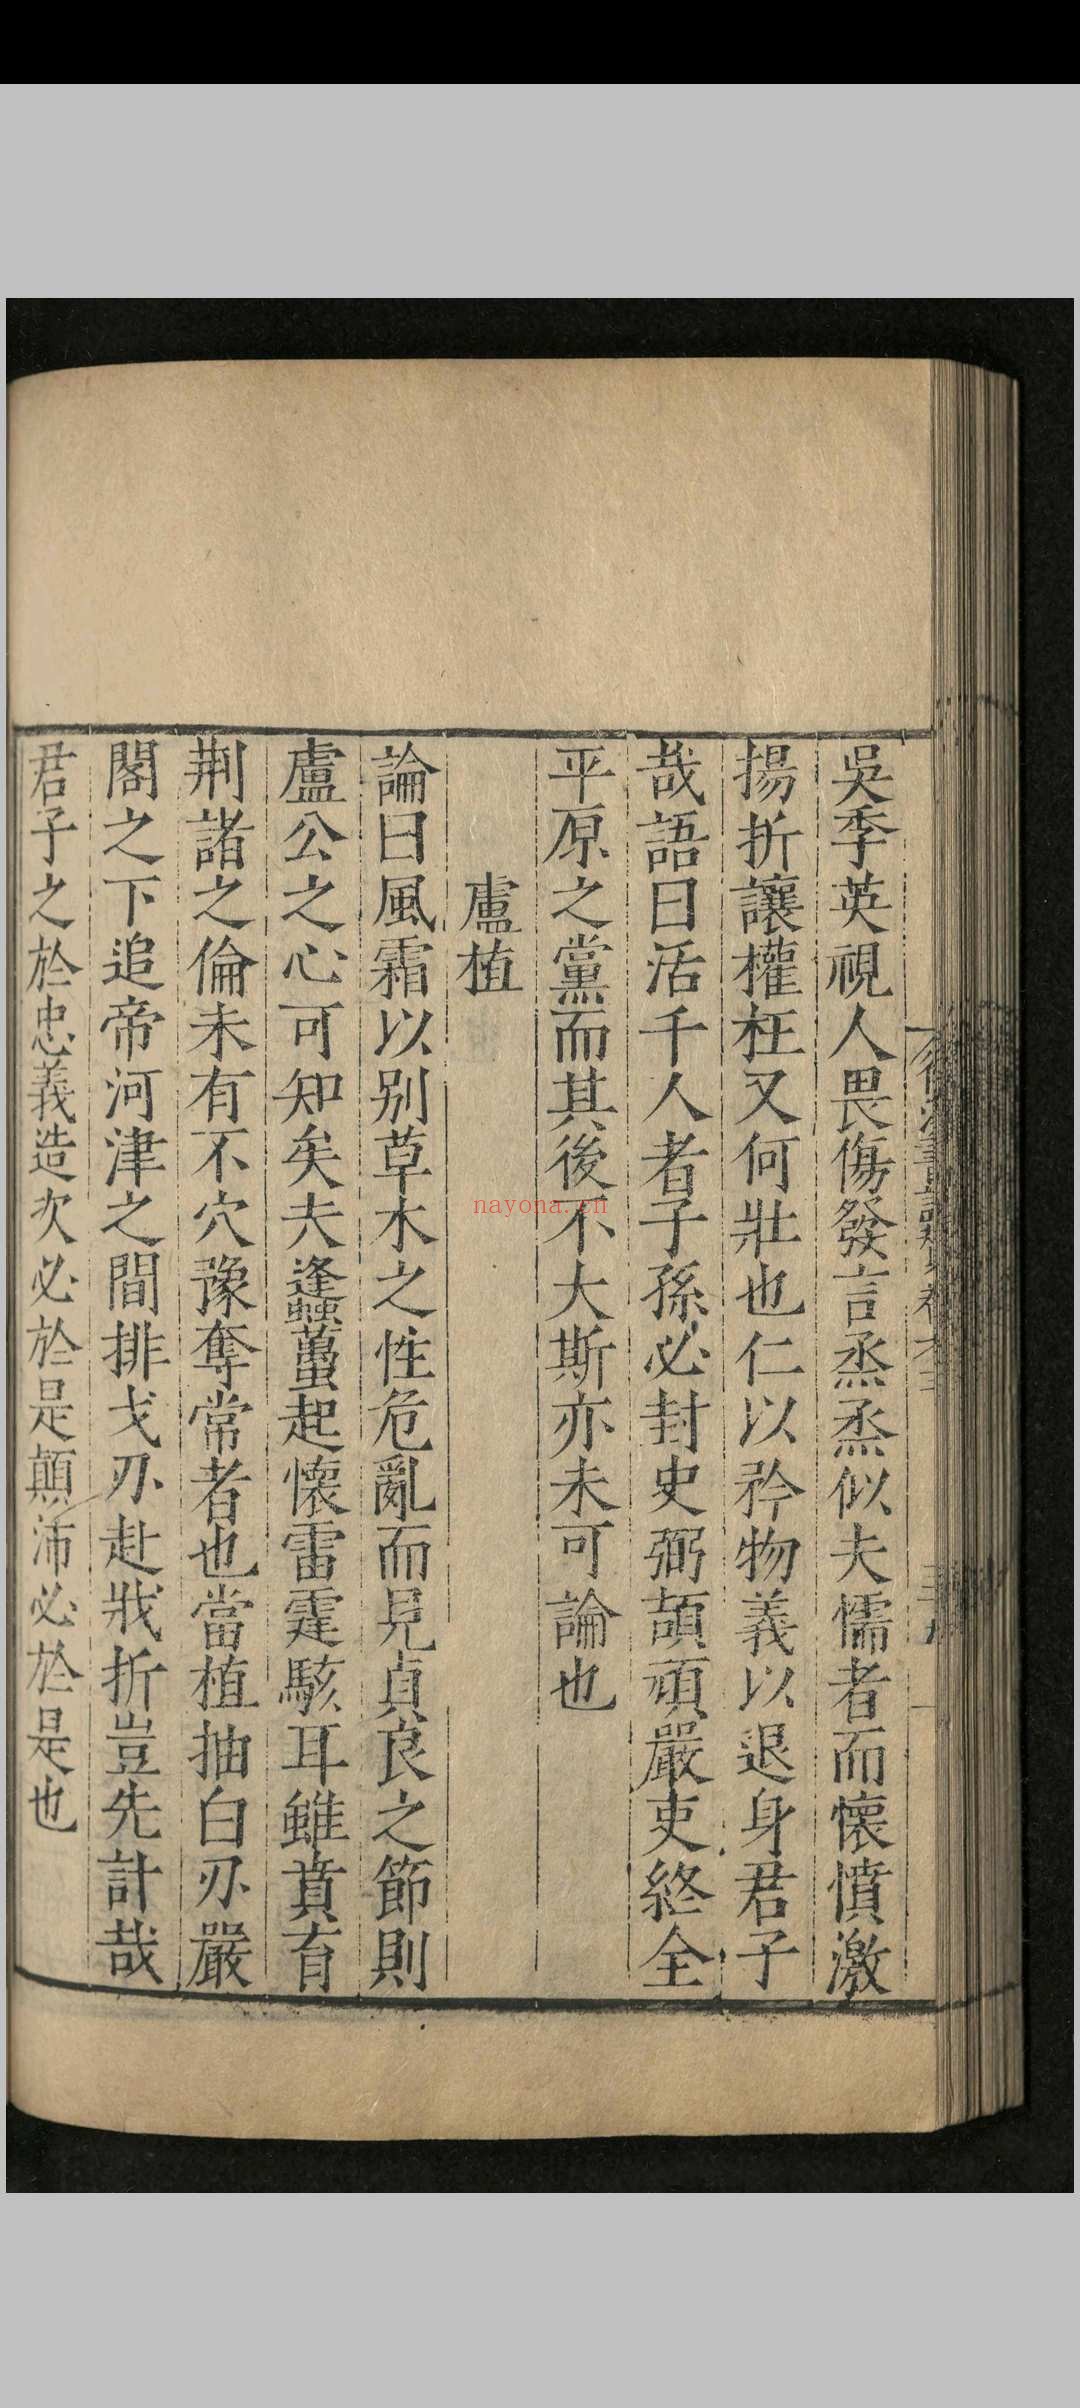 吳季英視人畏傷發言烝烝似夫懦者而懷憤激
揚折讓權枉又何壯也仁以矜物義以退身君子
哉語曰活千人者子孫必封史弼頡頏嚴吏終全
平原之黨而其後不大斯亦未可論也
盧植
論曰風霜以别草木之性危亂而見貞良之節則
盧公之心可知矣夫蠭蠆起懷雷霆駭耳雖賁育
荆諸之倫未有不冘豫奪常者也當植抽白刃嚴
閣之下追帝河津之間排戈刃赴戕折豈先計哉
君子之於忠義造次必於是顛沛必於是也
nayona.cn